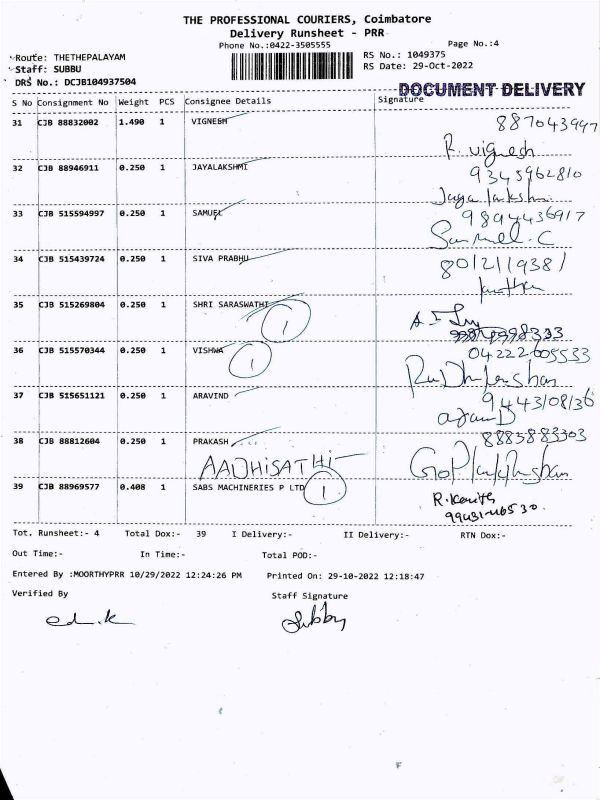 THE PROFESSIONAL COURIERS, Coimbatore
Delivery Runsheet - PRR
Phone No.:0422-3505555 Page No.:4
Route: THETHEPALAYAM RS No.: 1049375
Staff: SUBBU RS Date: 29-Oct-2022
DRS No.: DCJB104937504
DOCUMENT DELIVERY
S No Consignment No Weight PCS Consignee Details Signature
31 CJB 88832002 1.490 1 VIGNESH 887043997
R. vignesh
32 CJB 88946911 0.250 1 JAYALAKSHMI 9345962810
Jaya lakshmi
33 CJB 515594997 0.250 1 SAMUEL 9894436917
Samuel. C
34 CJB 515439724 0.250 1 SIVA PRABHU 8012119381
35 CJB 515269804 0.250 1 SHRI SARASWATHI
1
36 CJB 515570344 0.250 1 VISHWA 04222605533
1
37 CJB 515651121 0.250 1 ARAVIND 9443108136
38 CJB 88812604 0.250 1 PRAKASH 8883883303
AADHISATHI
39 CJB 88969577 0.408 1 SABS MACHINERIES P LTD 1 R. Kavith
Tot. Runsheet:- 4 Total Dox:- 39 I Delivery:- II Delivery:- RTN Dox:-
Out Time:- In Time:- Total POD:-
Entered By :MOORTHYPRR 10/29/2022 12:24:26 PM Printed On: 29-10-2022 12:18:47
Verified By Staff Signature
Subby